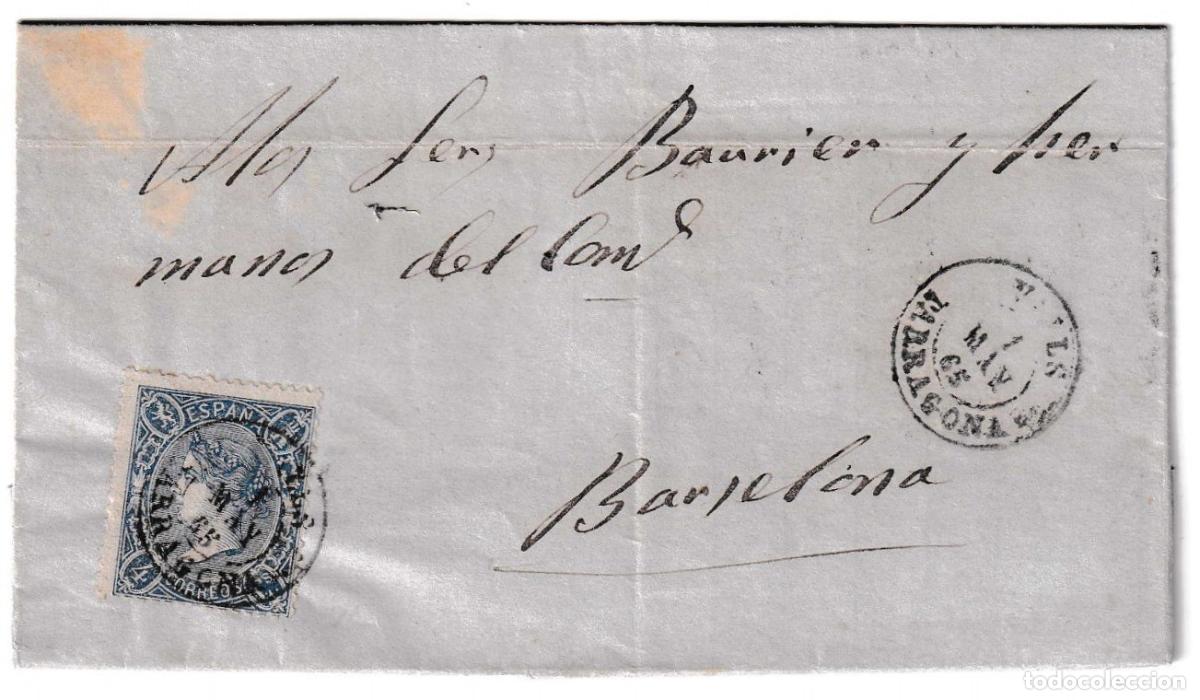 A los Sers Baurier y her
manos del Comº
Barselona
VALLS
1
MAY
65
TARRAGONA
ESPAÑA
4 CORREOS
1
MAY
65
TARRAGONA
todocoleccion